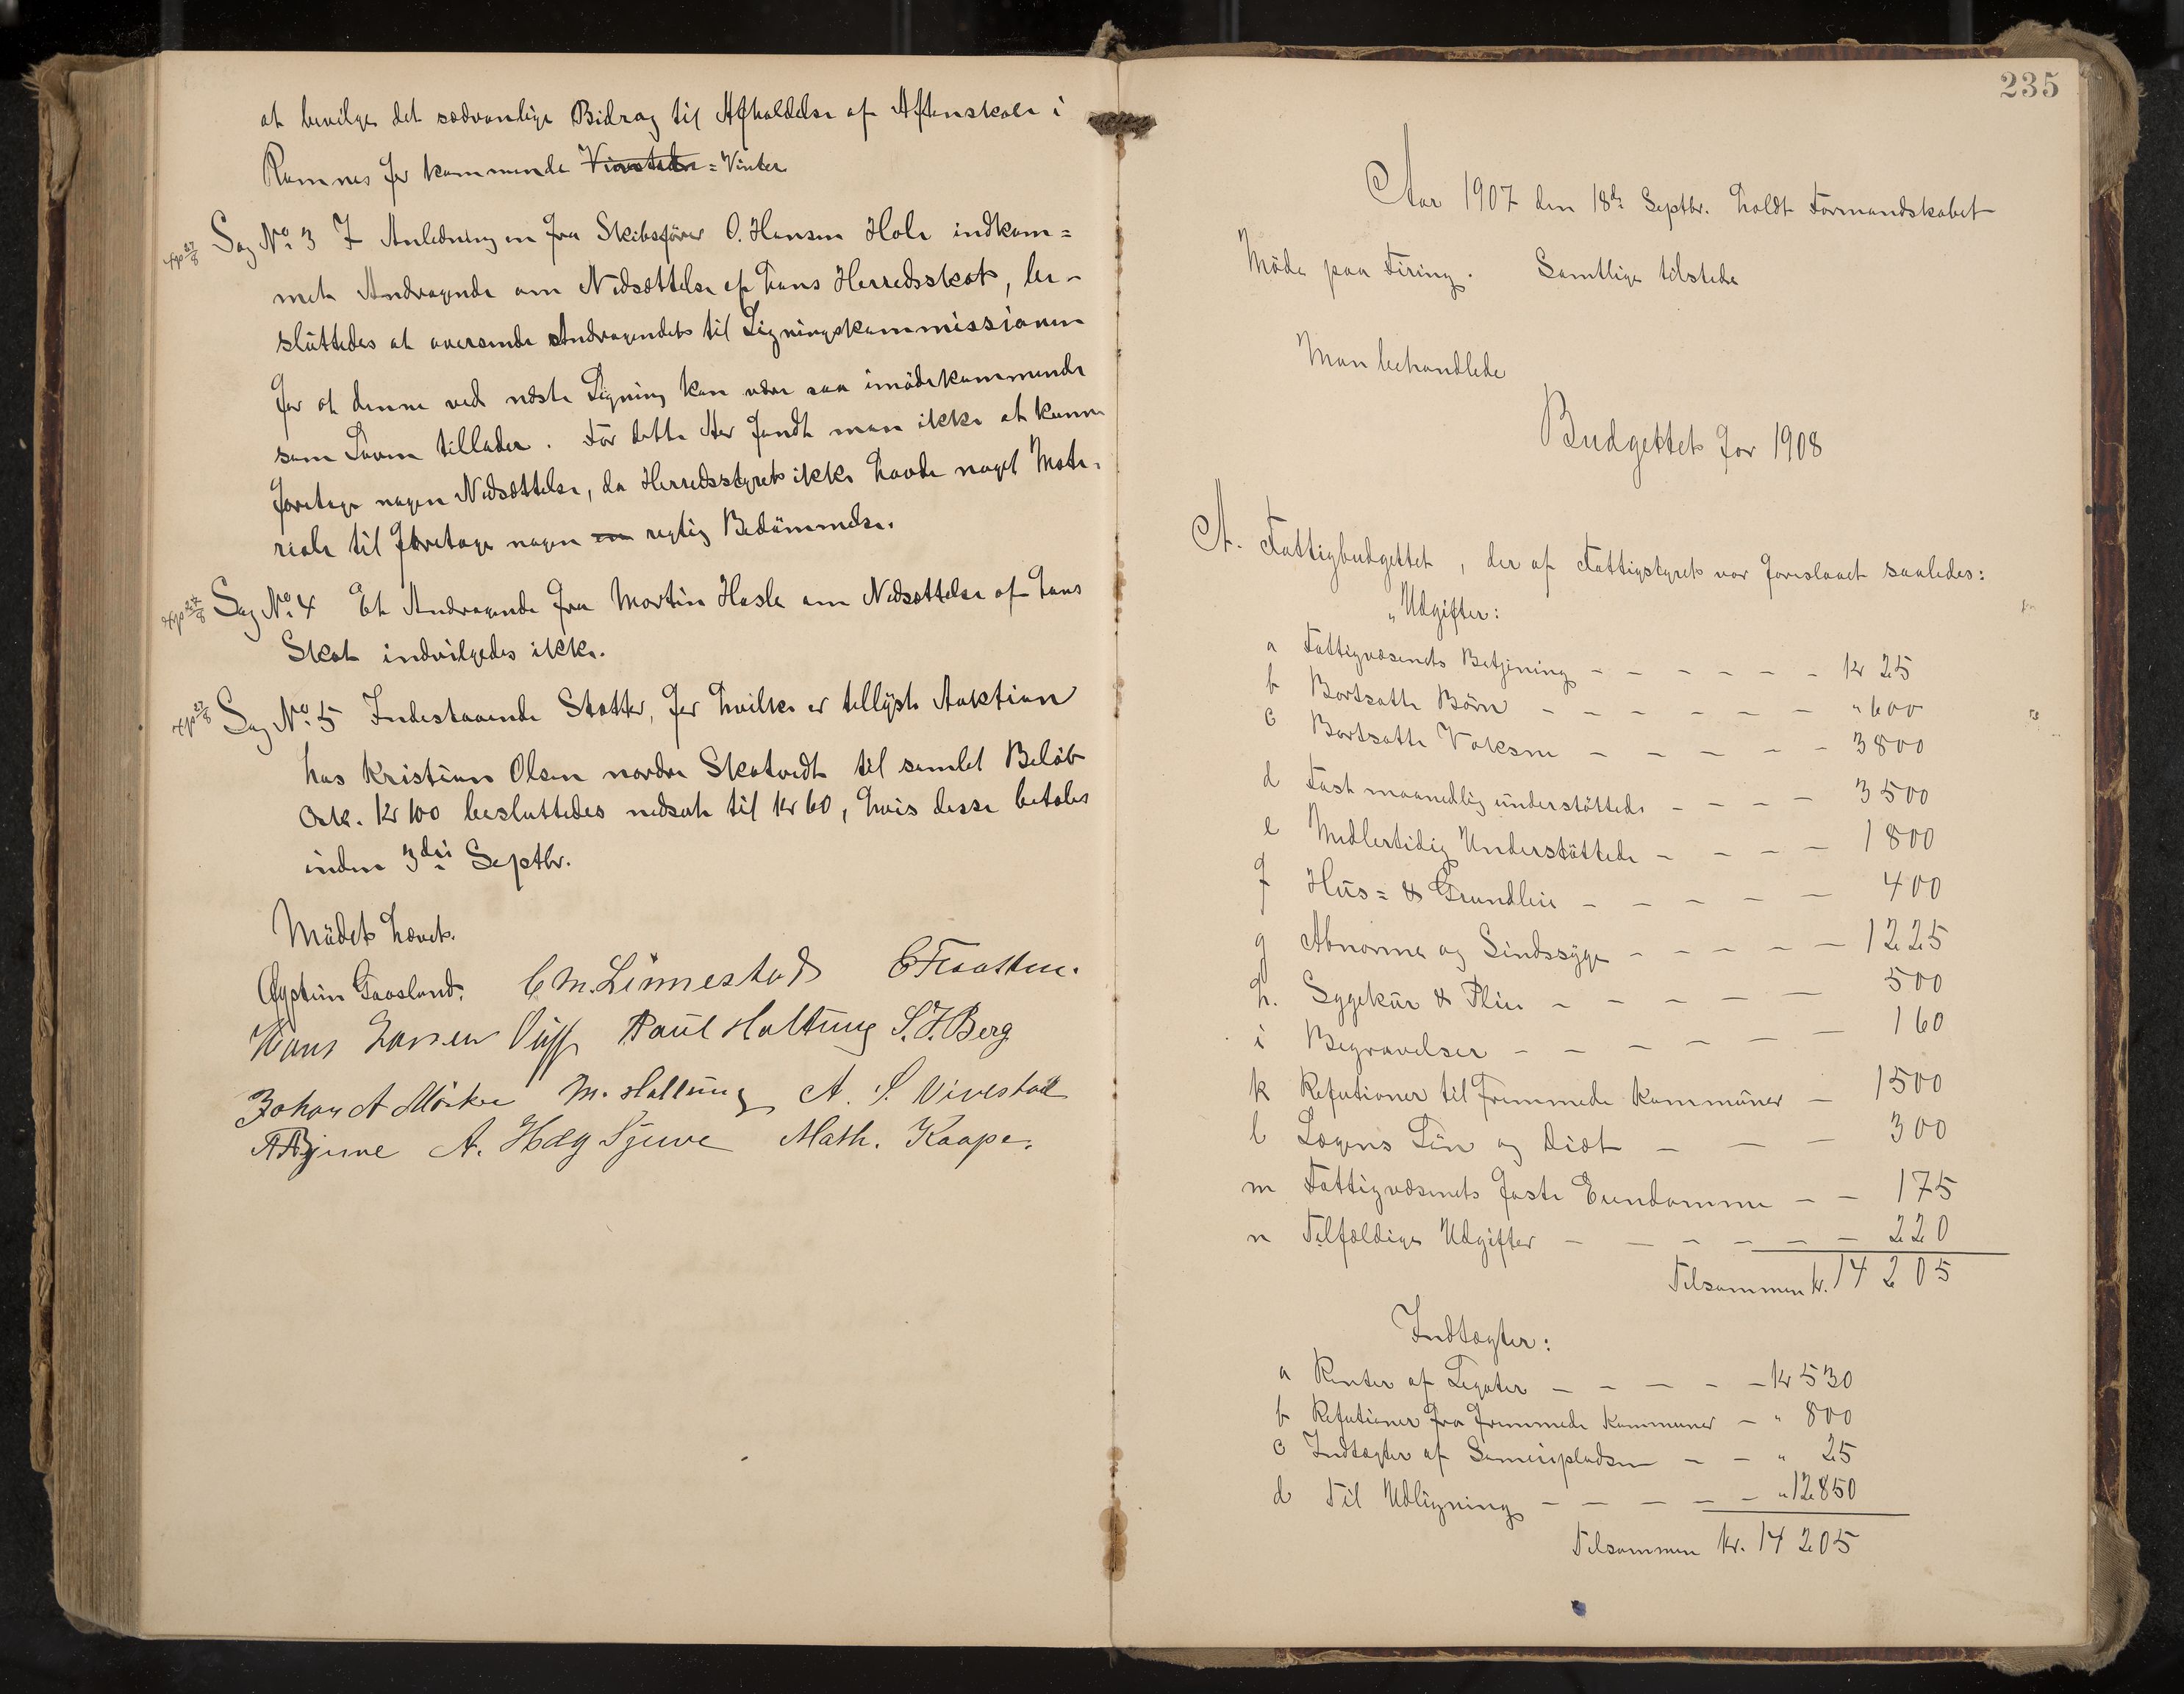 at bevilge det sædvanlige Bidrag til Afholdelse af Aftenskole i
Ramnes for kommende Vinter
Exp 27/8 Sag No 3 I Anledning en fra Skibsfører O. Hansen Hole indkom=
met Andragende om Nedsættelse af hans Herredsskat, be-
sluttedes at oversende Andragendet til Ligningskommissionen
for at denne ved næste Ligning kan være saa imødekommende
som Loven tillader. For dette Aar fandt man ikke at kunne
foretage nogen Nedsættelse, da Herredsstyret ikke havde noget Mate-
riale til foretage nogen rigtig Bedømmelse.
Exp 27/8 Sag No 4 Et Andragende fra Martin Hasle om Nedsættelse af hans
Skat indvilgedes ikke.
Exp 27/8 Sag No 5 Indestaaende Skatter, for hvilke er tillyst Auktion
hos Kristian Olsen nordre Skatvedt til samlet Beløb
Kr 100 besluttedes nedsat til Kr 60, hvis disse betales
inden 3die Septbr.
Mødet hævet.
Øystein Gaasland. C M. Linnestad
Hans Larsen Paul Haltung S. J. Berg
Johan A Mørken M. Haltung A. S. Vivestad
A. Hæg Syuve Math. Kaape.
235
Aar 1907 den 18de Septbr. holdt Formandskabet
Møde paa Firing. Samtlige tilstede
Man behandlede
Budgettet for 1908
A. Fattigbudgettet, der af Fattigstyret var foreslaaet saaledes:
" Udgifter:
a Fattigvæsenets Betjening - - - - - - Kr 25
b Bortsatte Børn - - - - - - " 600
c Bortsatte Voksne - - - - - 3800
d Fast maanedlig understøttede - - - - 3500
e Midlertidig Understøttede - - - - 1800
f Hus= & Grundleie - - - - - 400
g Abnorme og Sindssyge - - - - - 1225
h. Sygekur & Pleie - - - - - 500
i Begravelser - - - - - - 160
k Refutioner til fremmede Kommuner - 1500
l Lægens Løn og Diæt - - - 300
m Fattigvæsenets faste Eiendomme - - 175
n Tilfældige Udgifter - - - - - - 220
Tilsammen kr. 14205
Indtægter:
a Renter af Legater - - - - - Kr 530
b Refutioner fra fremmede Kommuner - " 800
c Indtægter af Semeispladsen - - " 25
d Til Udligning - - - - - " 12850
Tilsammen Kr. 14205